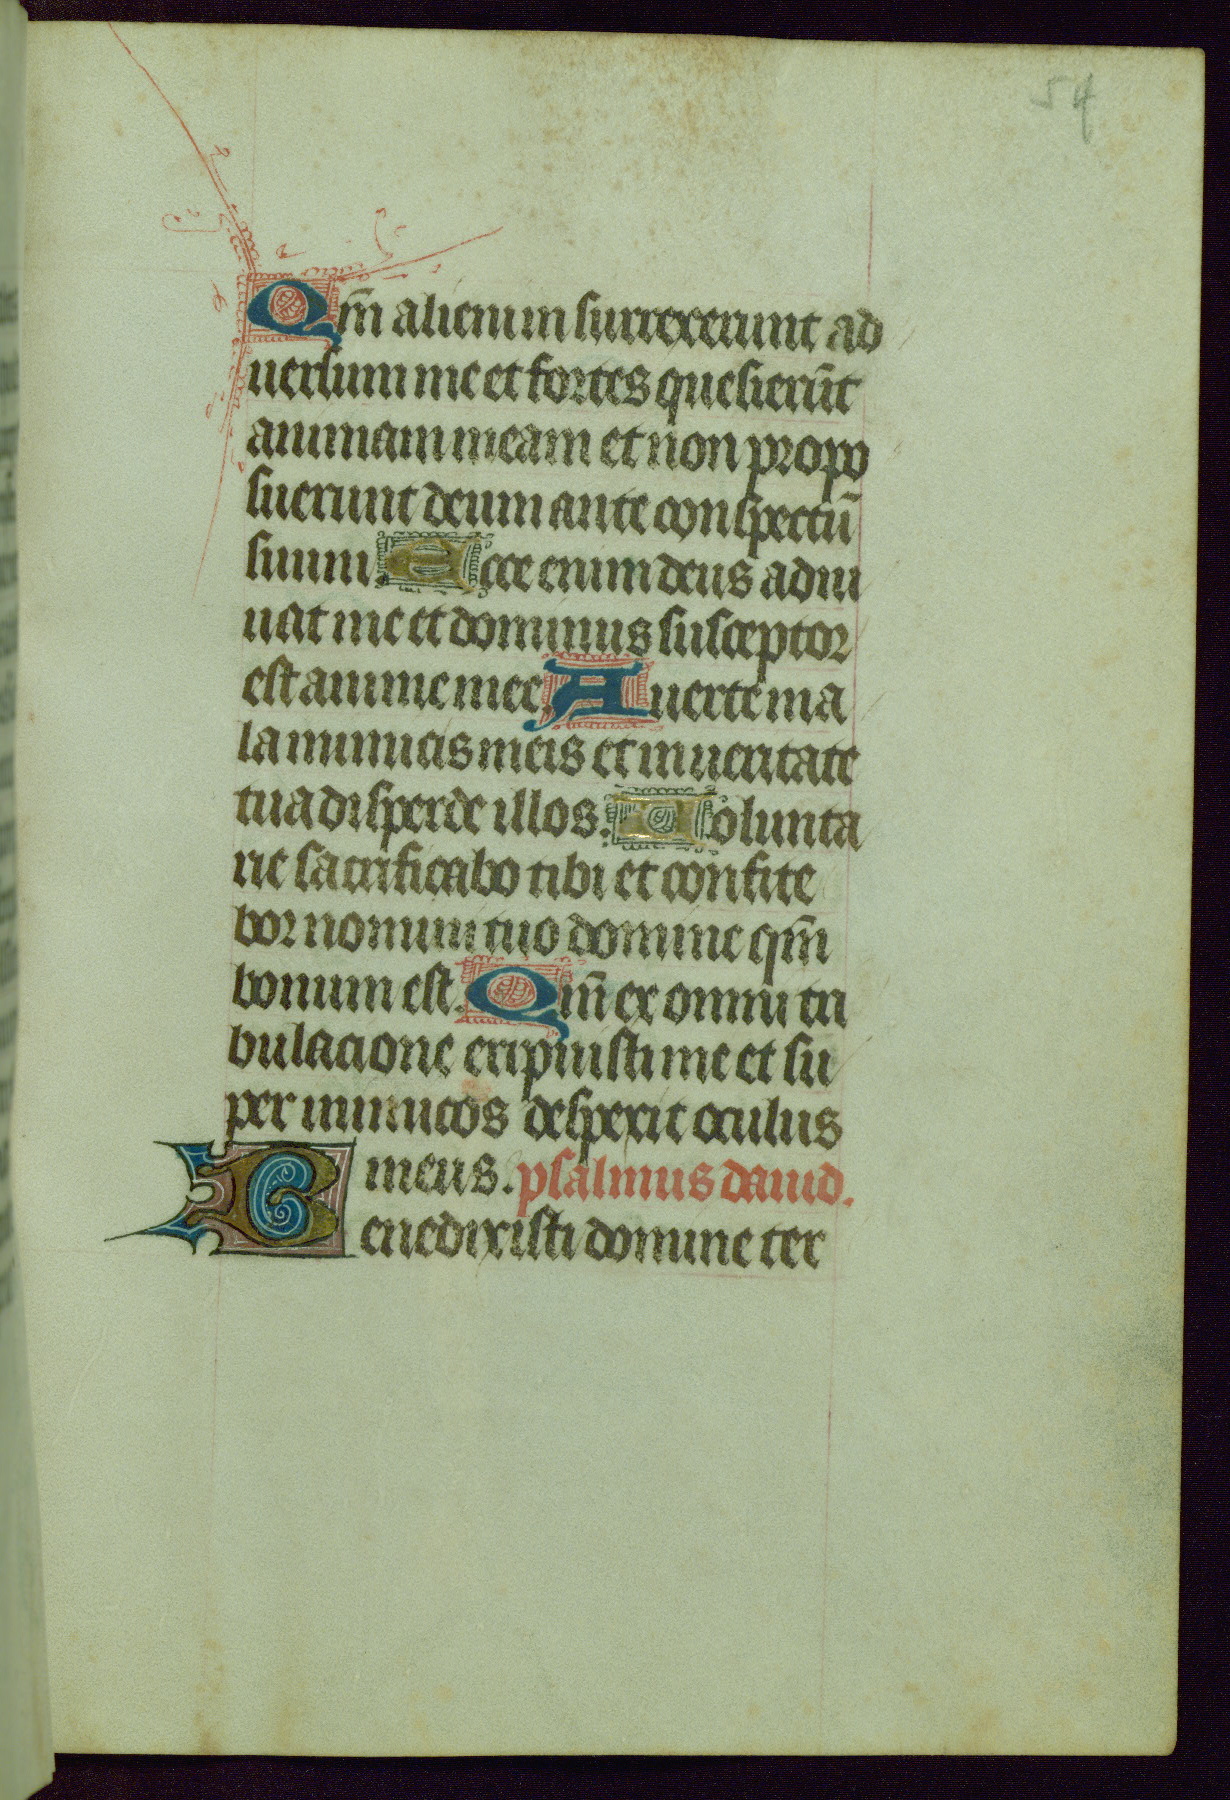 54
Qm̄ alieni in surrexerunt ad
uersum me et fortes quesierūt
animam meam et non propo
suerunt deum ante conspectū
suum. Ecce enim deus adiu
uat me et dominus susceptor
est anime mee. Auerte ma
la inimicis meis et in ueritate
tua disperde illos. Uolunta
rie sacrificabo tibi et confite
bor nomini tuo domine qm̄
bonum est. Qm̄ ex omni tri
bulacione eripuisti me et su
per inimicos despexit oculus
meus. psalmus dauid.
Benedixisti domine ter